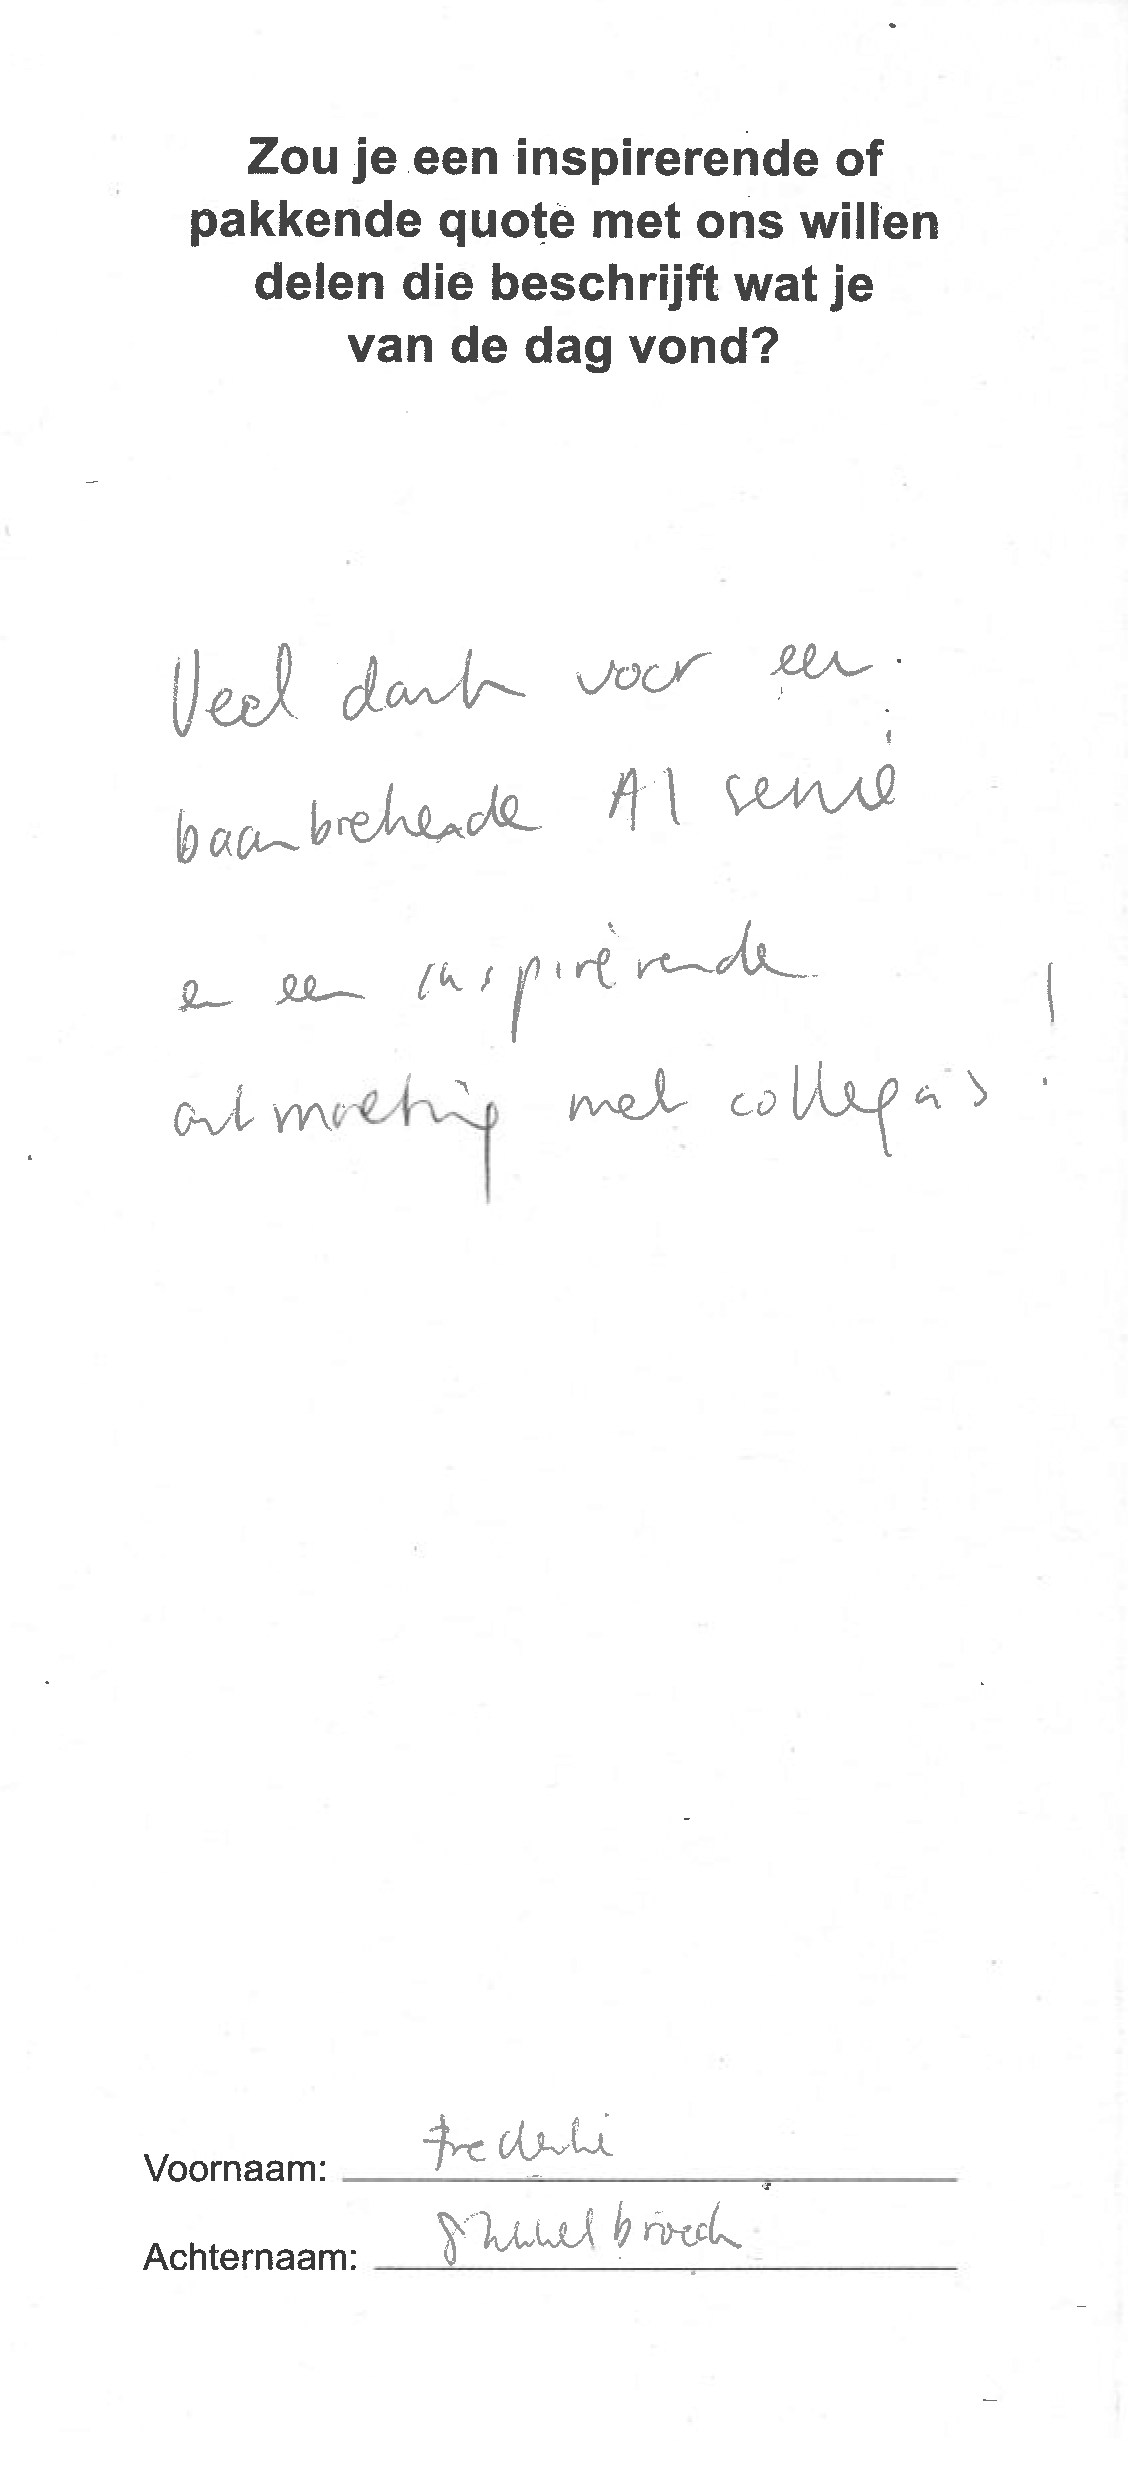 Zou je een inspirerende of
pakkende quote met ons willen
delen die beschrijft wat je
van de dag vond?
Veel dank voor een
baanbrekende AI serie
en een inspirerende
ontmoeting met collega's!
Voornaam:
Achternaam: